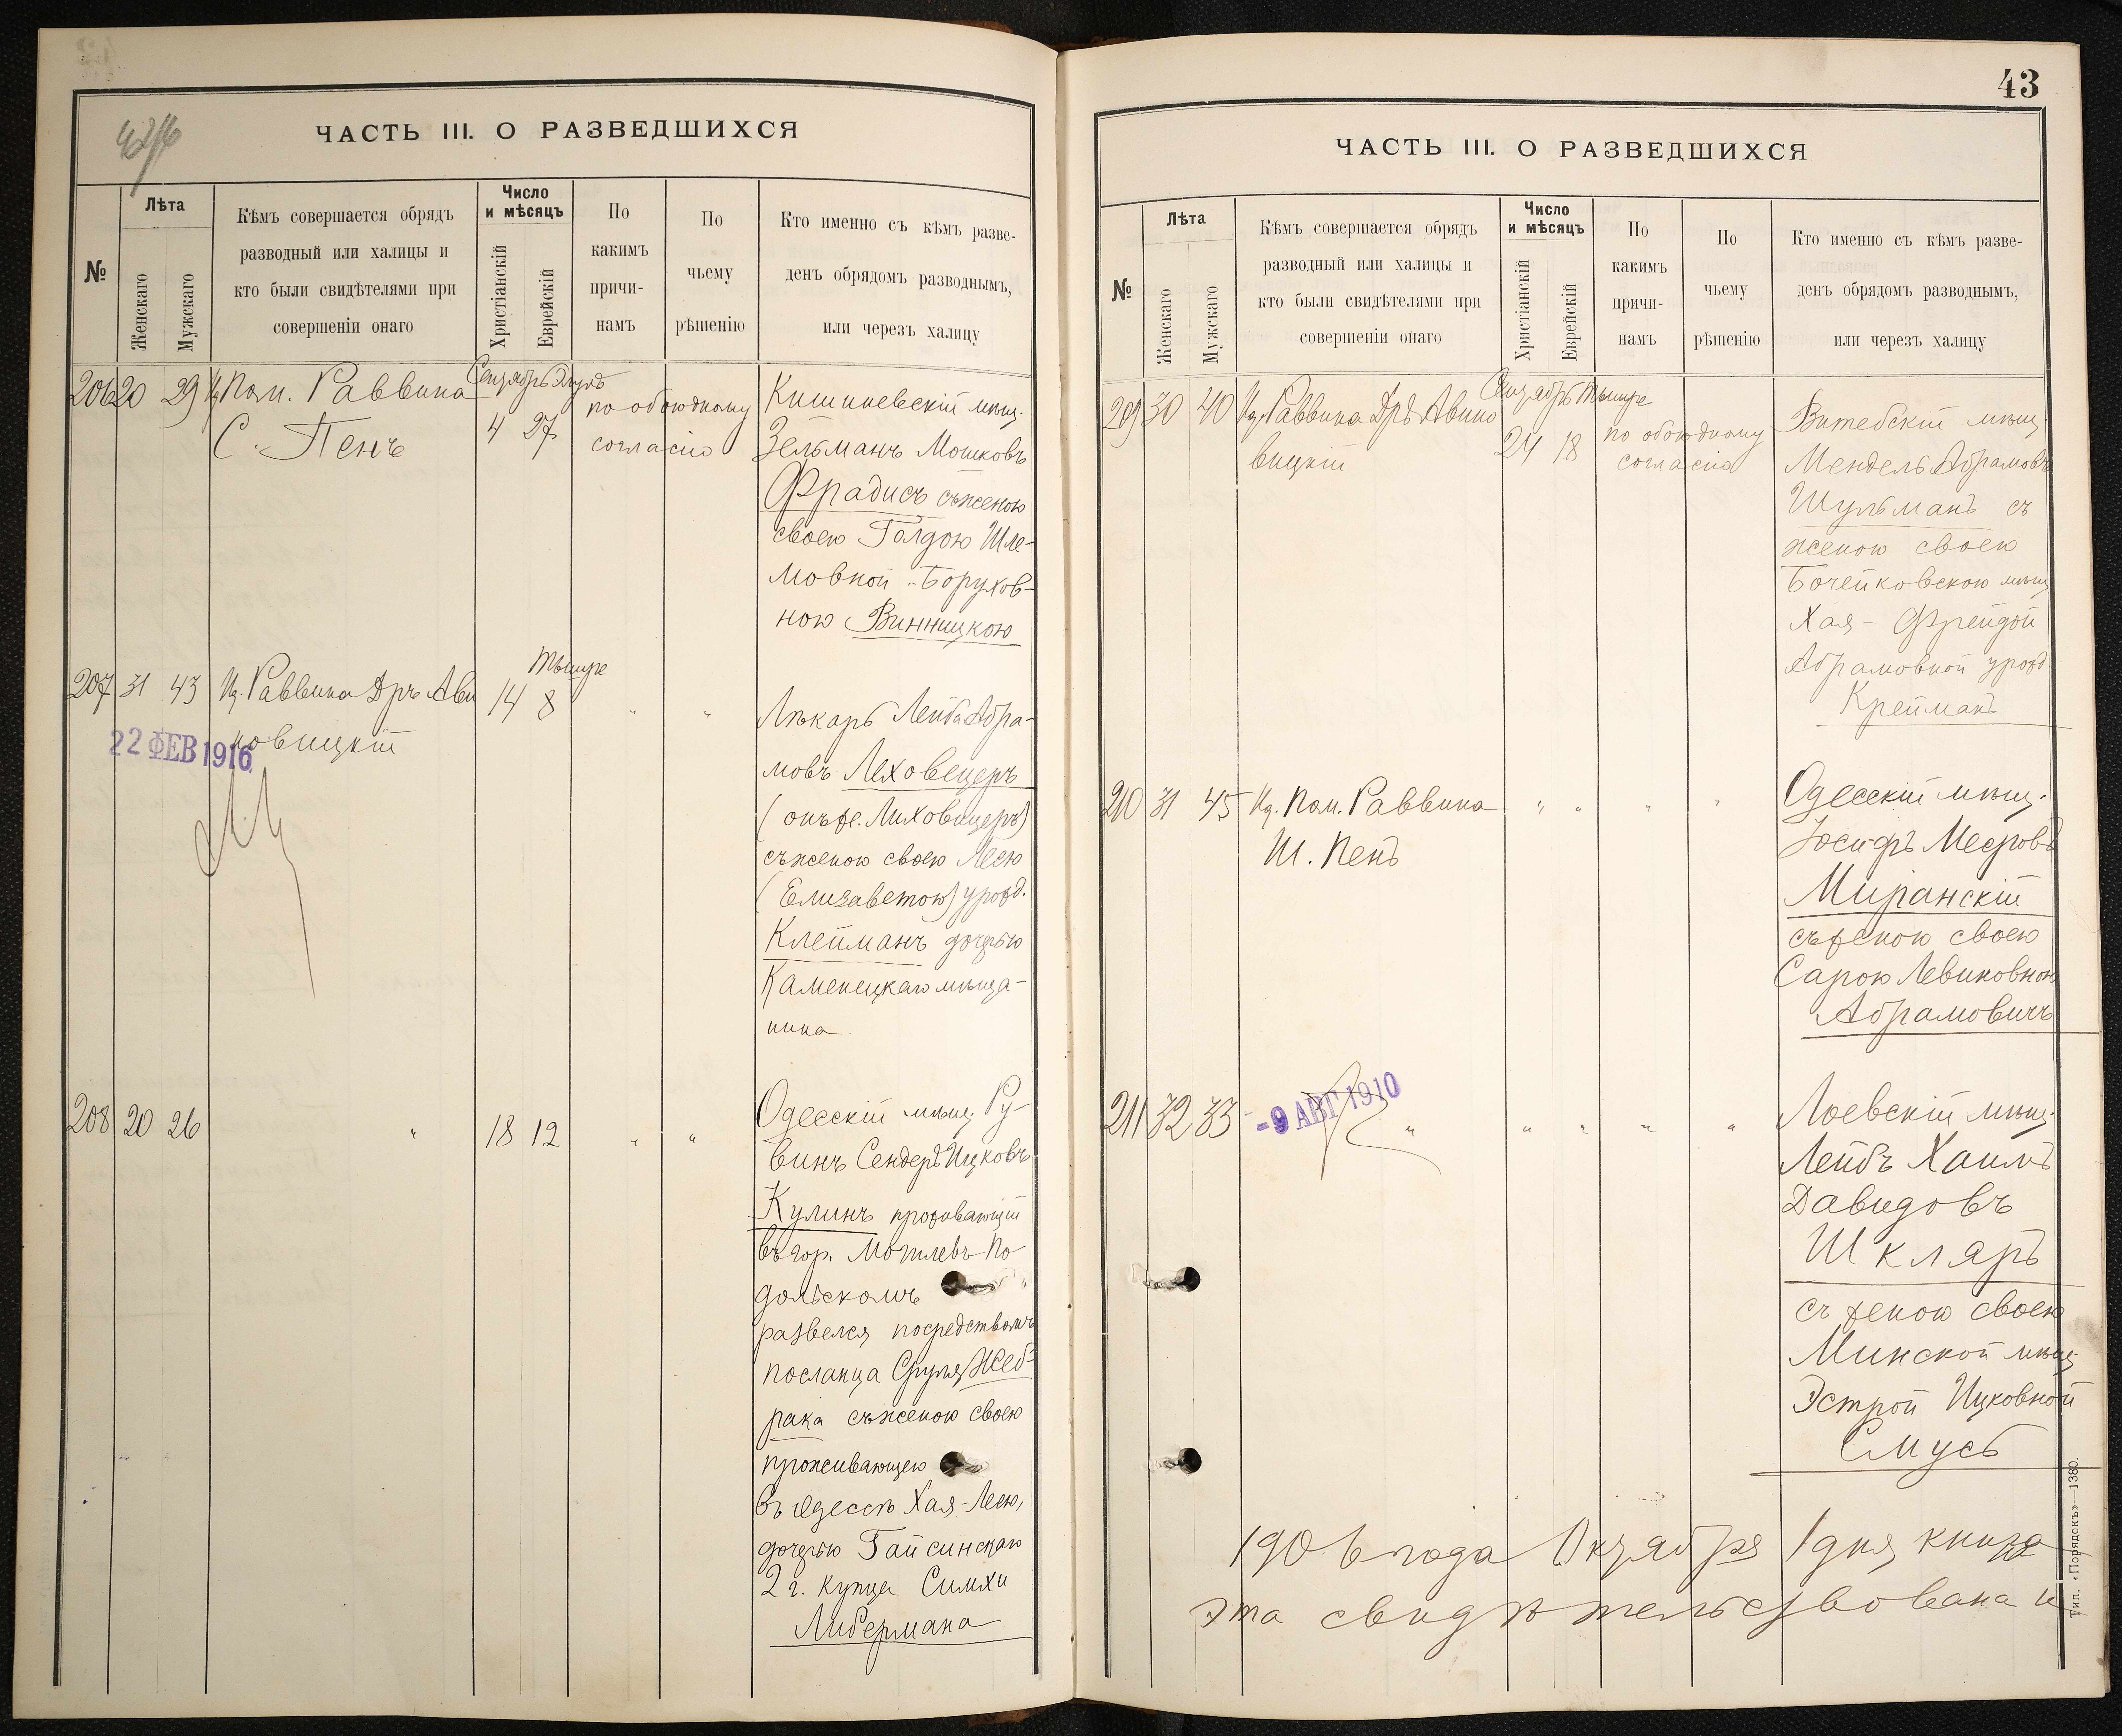 ЧАСТЬ III. О РАЗВЕДШИХСЯ
№
Лѣта
Женскаго
Мужскаго
Кѣмъ совершается обрядъ
разводный или халицы и
кто были свидѣтелями при
совершеніи онаго
Число
и мѣсяцъ
Христіанскій
Еврейскій
По
какимъ
причи-
намъ
По
чьему
рѣшенію
Кто именно съ кѣмъ разве-
денъ обрядомъ разводнымъ,
или черезъ халицу
206 20 29 Пом. Раввина
С. Пенъ
Сентябрь Элулъ
4 27
по обоюдному
согласію
Кишиневскій мѣщ.
Зельманъ Мошковъ
Фрадисъ съ женою
своею Голдою Шле-
мовной-Борухов-
ною Винницкою
207 31 43 Раввина Дръ Ави
новицкій
22 ФЕВ 1916
Тышре
14 8 " "
Лѣкарь Лейба Абра-
мовъ Леховецеръ
(онъ же Лиховецеръ)
съ женою своею Лею
(Елизаветою) урожд.
Клейманъ дочерью
Каменецкаго мѣща-
нина
208 20 26 " 18 12 " "
Одесскій мѣщ. Ру-
винъ Сендеръ Ицковъ
Кулинъ проживающій
въ гор. Могилевъ По-
дольскомъ
развелся посредствомъ
посланца Сруля Жеб-
рака съ женою своею
проживающею
въ Одессѣ Хая-Лею,
дочерью Гайсинскаго
2 г. купца Симхи
Либермана
43
ЧАСТЬ III. О РАЗВЕДШИХСЯ
№
Лѣта
Женскаго
Мужскаго
Кѣмъ совершается обрядъ
разводный или халицы и
кто были свидѣтелями при
совершеніи онаго
Число
и мѣсяцъ
Христіанскій
Еврейскій
По
какимъ
причи-
намъ
По
чьему
рѣшенію
Кто именно съ кѣмъ разве-
денъ обрядомъ разводнымъ,
или черезъ халицу
209 30 40 Раввина Дръ Авино
вицкій
Сентябрь Тышре
24 18
по обоюдному
согласію
Витебскій мѣщ.
Мендель Абрамовъ
Шульманъ съ
женою своею
Бочейковскою мѣщ.
Хая-Фрейдой
Абрамовной урожд
Крейманъ
210 31 45 Пом. Раввина " " " "
Ш. Пенъ
Одесскій мѣщ.
Іосифъ Мееровъ
Миранскій
съ женою своею
Сарою Левиковною
Абрамовичъ
211 32 33 - 9 АВГ 1910 " " " " "
Лоевскій мѣщ.
Лейбъ Хаимъ
Давидовъ
Шкляръ
съ женою своею
Минской мѣщ.
Эстрой Ицковной
Смусь
1906 года Октября 1 дня книга
эта свидѣтельствована и
Тип. «Порядокъ»—1380.